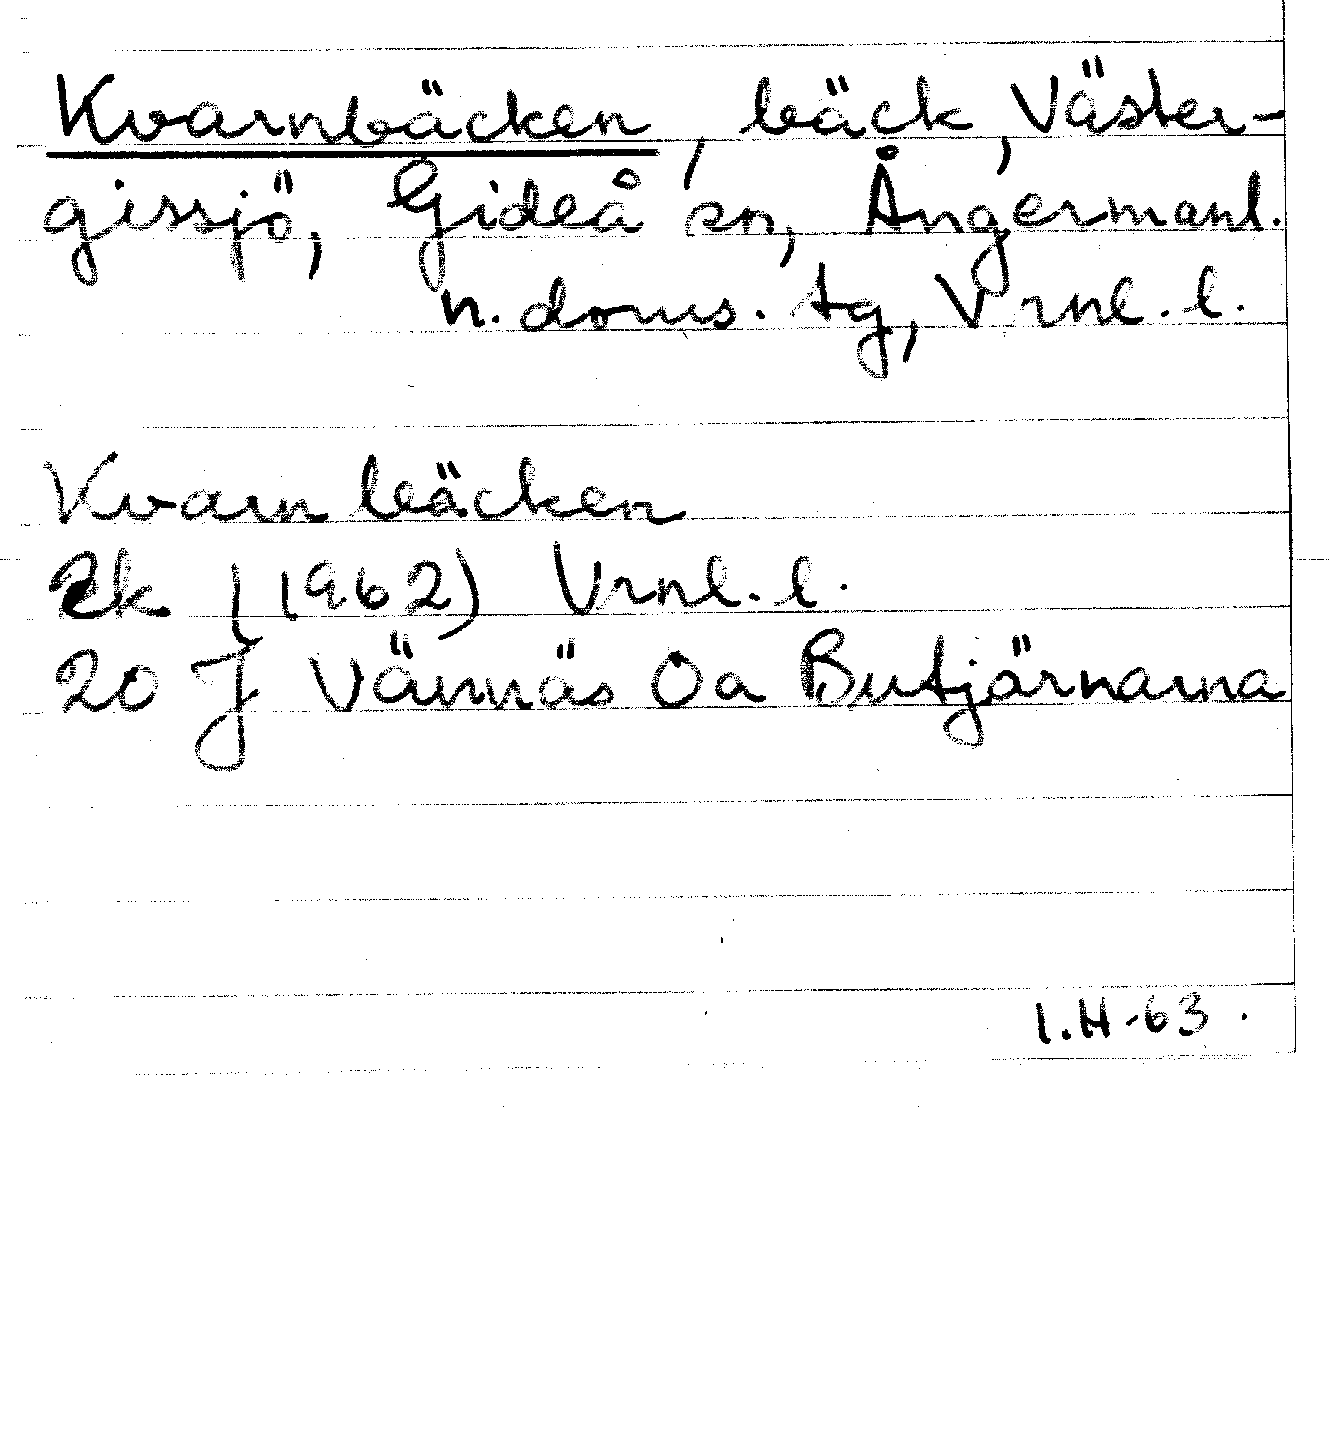 Kvarnbäcken, bäck, Väster-
gissjö, Gideå sn, Ångermanl.
n. doms. tg, Vrnl. l.
Kvarnbäcken
Ek (1962) Vrnl. l.
20 J Vännäs 0a Butjärnarna
I.H-63.